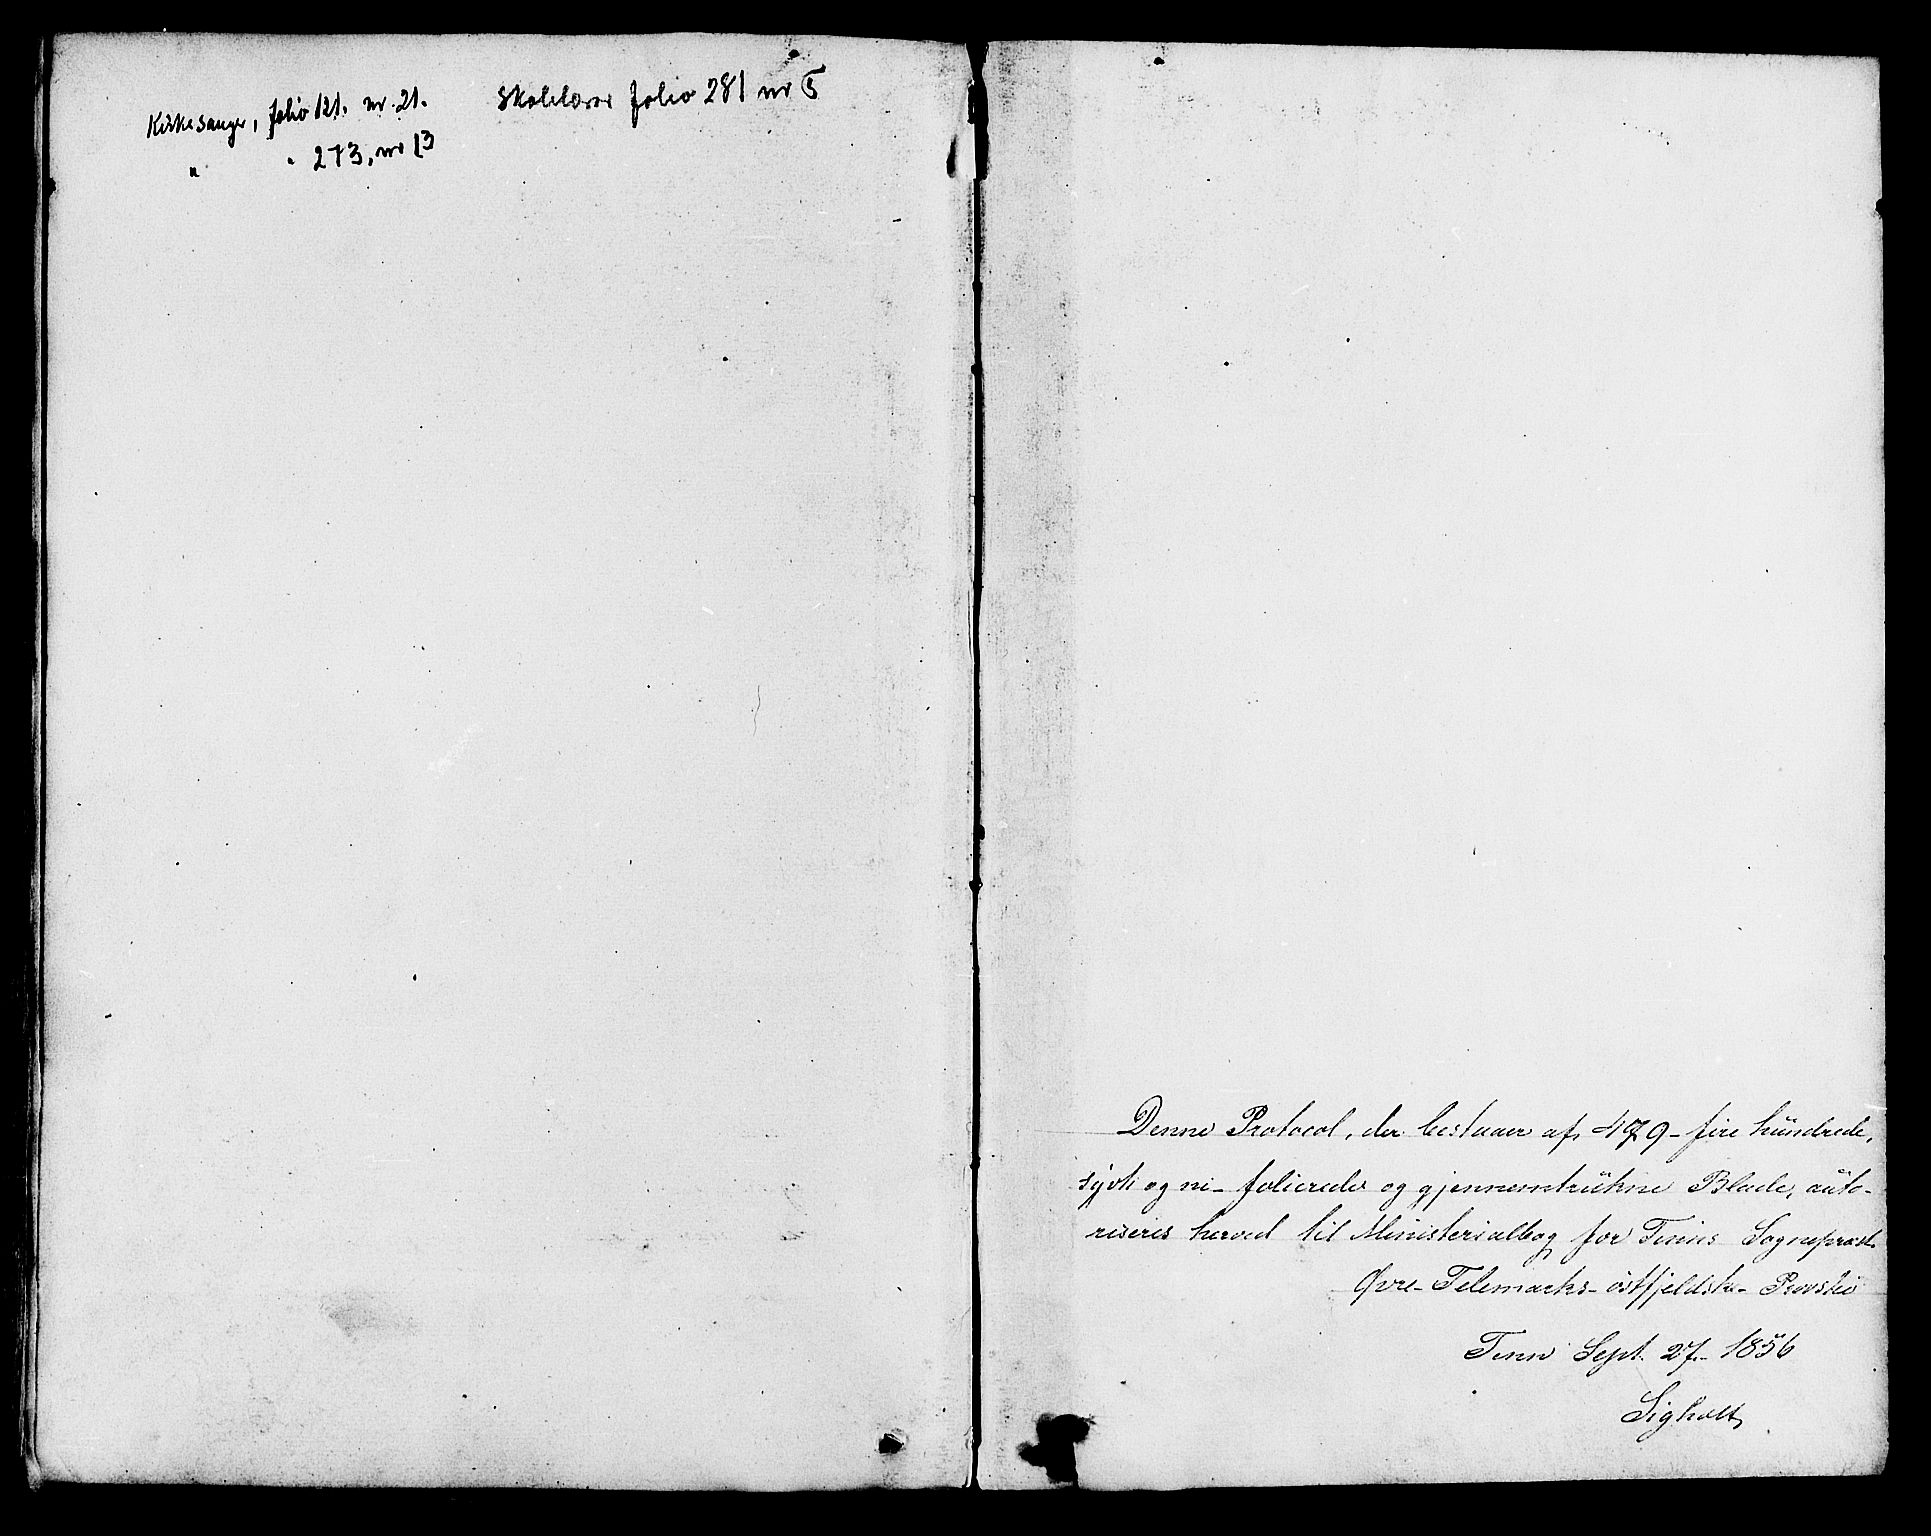 Kirkesanger, folio 121. nr. 21.
" " 273, nr 13
Skolelærer folio 281 nr 5
Denne Protocol, der bestaaer af 479 - fire hundrede,
sytti og ni - folierede og gjennemtrukne Blade, auto-
riseres herved til Ministerialbog for Tinns Sognepræst.
Øvre-Telemarks-østfjeldske- Provstie
Tinn Sept. 27.- 1856
Sigholt